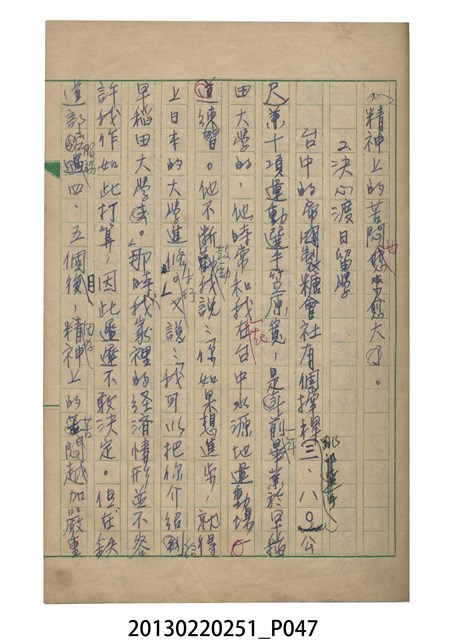 精神上的苦悶也愈大了。
2.決心渡日留學
台中的帝國製糖會社有個撐桿跳（三、八〇）公
尺兼十項運動選手笠原寬，是年前畢業於早稻
田大學的，他時常和我在一起台中水源地運動場
練習。他不斷鼓勵我說：你如果想進步，就得
上日本的大學進修才行。又說：我可以把你介紹到
早稻田大學去。那時我家裡的經濟情形並不容
許我作如此打算，因此遲遲不敢決定。但在鐵
道部服務四、五個月後，精神上的苦悶越加嚴重
20130220251_P047